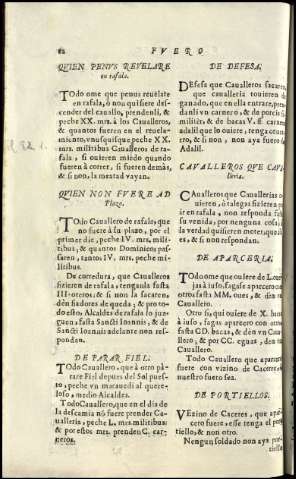 82
FVERO
QVIEN PENVS REVELARE
en rafala.
Todo ome que penus reuelare
en rafala, ò non quisiere des-
cender del cauallo, prendenli, &
peche XX. mrs. à los Caualleros,
& quantos fueren en el reuela-
miento, vnusquisque peche XX.
mrs. militibus Caualleros de ra-
fala, si ouieren miedo quando
fueren à correr, si fueren demàs,
& si non, la meatad vayan.
QVIEN NON FVERE AD
Plazo.
Todo Cauallero de rafala, que
no fuere à su plazo, por el
primer die, peche IV. mrs. mili-
tibus, & quantos Dominicos pas-
saren, tantos IV. mrs. peche mi-
litibus.
De corredura, que Caualleros
fizieren de rafala, tengaula fasta
III. oteros; & si non la sacaren,
den fiadores de queda; & pro to-
do esto, Alcaldes de rafala lo juz-
guen, fasta Sancti Ioannis, & de
Sancti Ioannis adelante non res-
pondan.
DE PARAR FIEL.
Todo Cauallero, que à orne pà-
rare Fiel depues del Sol pues-
to, peche vn marauedì al quere-
loso, medio Alcaldes.
Todo Cauallero, que en el dia de
la descamia nò fuere prender Ca-
ualleria, peche L. mrs. militibus;
& por estos mrs. prenden C. car-
neros.
DE DEFESA.
Defesa que Caualleros sacaren,
que caualleria touieren de
ganado, que en ella entrare, pren-
dan li vn carnero, & de porcis si-
militer, & de bacas V.
dalil que lo ouiere, tenga
ro, & si non, non aya
Adalil.
CAVALLEROS QVE CAVA-
lleria.
Caualleros que Caualleria
uieren, ò talegas fizieren
ir en rafala, non responda
su venida, por nenguna cosa;
la verdad quisieren meter,
es, & si non respondan.
DE APARCERIA.
Todo ome que ouiere de L.
jas à iuso, fagase apparcero
otros fasta MM. oues, & den
Cauallero.
Otro si, qui ouiere de X.
à iuso, fagas aparcero con otros
fasta CD. bacas, & den vn Caua-
llero, & por CC. eguas, den vn
Cauallero.
Todo Cauallero que
fuere con vizino de Caceres,
nuestro fuero sea.
DE PORTIELLOS.
Vezino de Caceres, que
cero fuere, esse tenga el por-
tiello, & non otro.
Nengun soldado non aya por-
tiello